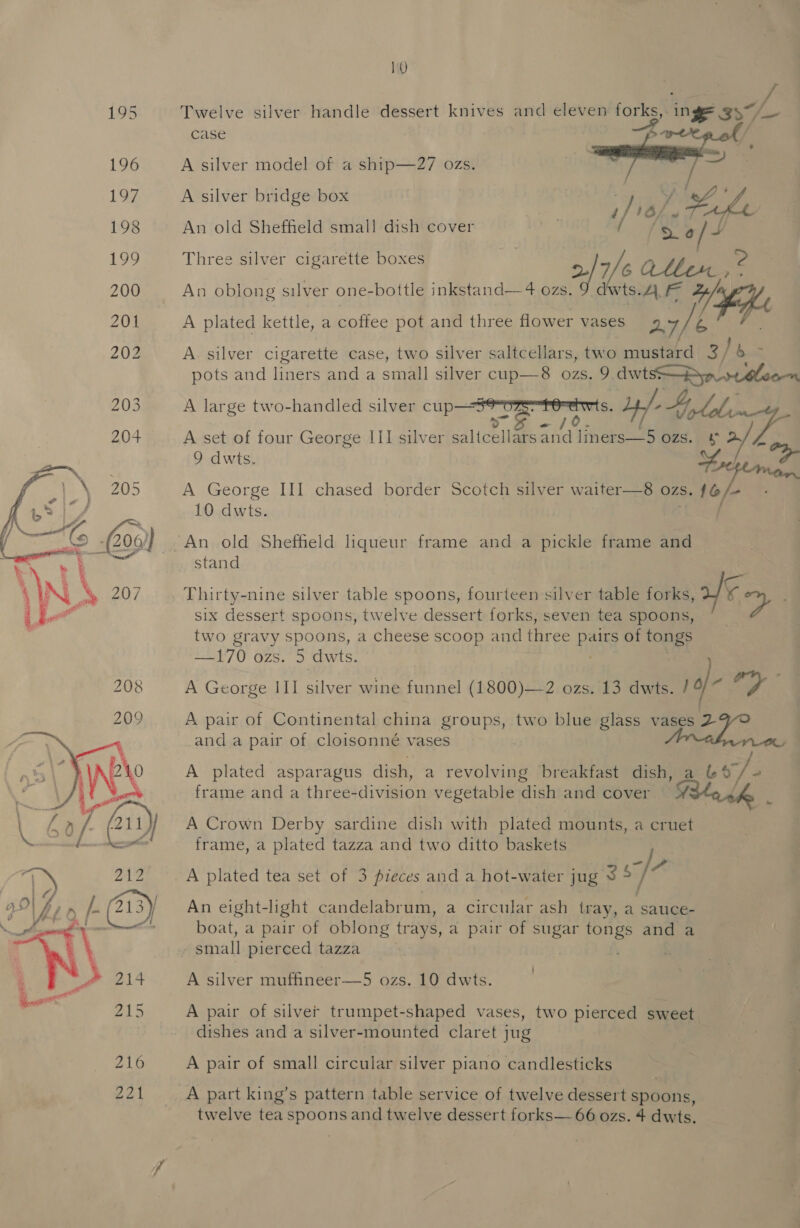 10
195 Twelve silver handle dessert knives and eleven forks, in 35/-
case
196 A silver model of a ship—27 ozs.
197 A silver bridge box
198 An old Sheffield small dish cover
199 Three silver cigarette boxes 2/7/6 Allen ?
200 An oblong silver one-bottle inkstand—4 ozs. 9 dwts.
201 A plated kettle, a coffee pot and three flower vases 27/6
202 A silver cigarette case, two silver saltcellars, two mustard 3/6
pots and liners and a small silver cup—8 ozs. 9 dwts
203 A large two-handled silver cup—59 ozs. 10 dwts. 4/-
204 A set of four George III silver saltcellars and liners—5 ozs.
9 dwts.
205 A George III chased border Scotch silver waiter—8 ozs. 16/-
10 dwts.
206 An old Sheffield liqueur frame and a pickle frame and
stand
207 Thirty-nine silver table spoons, fourteen silver table forks,
six dessert spoons, twelve dessert forks, seven tea spoons,
two gravy spoons, a cheese scoop and three pairs of tongs
—170 ozs. 5 dwts.
208 A George III silver wine funnel (1800)—2 ozs. 13 dwts. 10/- oz
209 A pair of Continental china groups, two blue glass vases
and a pair of cloisonné vases
210 A plated asparagus dish, a revolving breakfast dish, a 65/-
frame and a three-division vegetable dish and cover
60/- 211 A Crown Derby sardine dish with plated mounts, a cruet
frame, a plated tazza and two ditto baskets
212 A plated tea set of 3 pieces and a hot-water jug 35/-
213 An eight-light candelabrum, a circular ash tray, a sauce-
boat, a pair of oblong trays, a pair of sugar tongs and a
small pierced tazza
214 A silver muffineer—5 ozs. 10 dwts.
215 A pair of silver trumpet-shaped vases, two pierced sweet
dishes and a silver-mounted claret jug
216 A pair of small circular silver piano candlesticks
221 A part king's pattern table service of twelve dessert spoons,
twelve tea spoons and twelve dessert forks—66 ozs. 4 dwts.